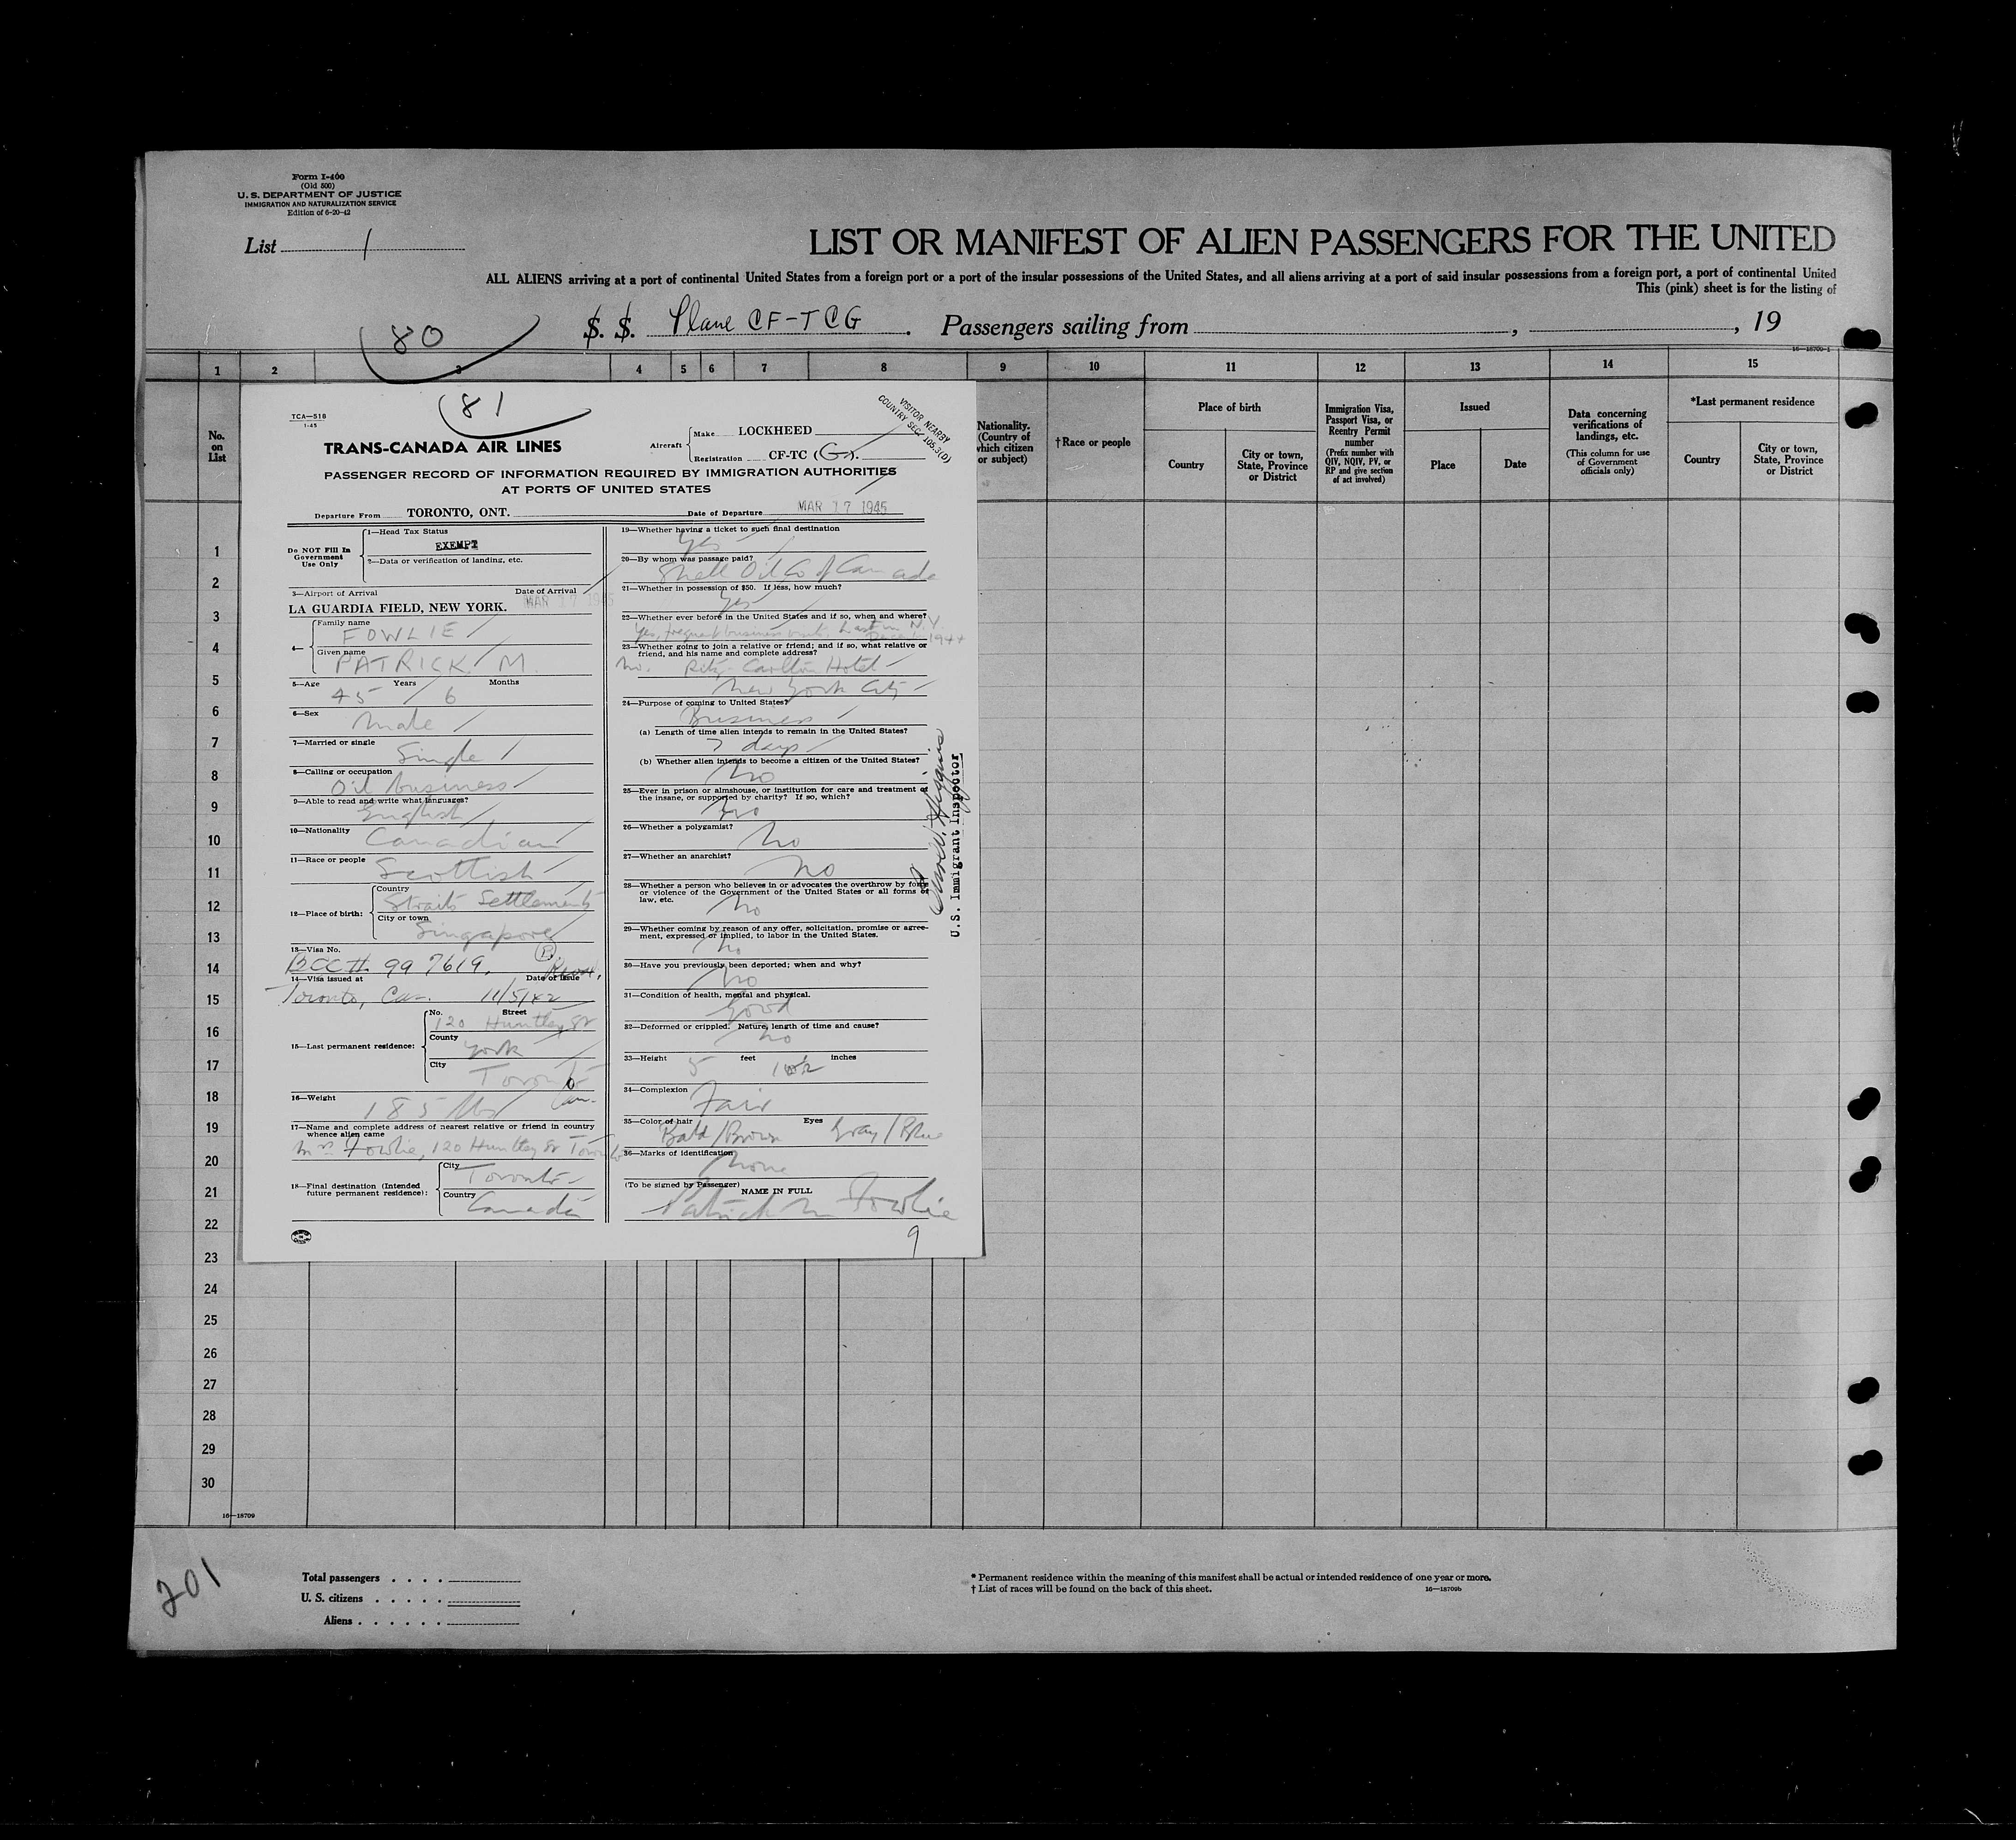 Form I-400
(Old 500)
U. S. DEPARTMENT OF JUSTICE
IMMIGRATION AND NATURALIZATION SERVICE
Edition of 6-20-42
List 1
LIST OR MANIFEST OF ALIEN PASSENGERS FOR THE UNITED
ALL ALIENS arriving at a port of continental United States from a foreign port or a port of the insular possessions of the United States, and all aliens arriving at a port of said insular possessions from a foreign port, a port of continental United
This (pink) sheet is for the listing of
80
S. S. Plane CF-TCG. Passengers sailing from , , 19
16—18709-1
1 2 3 4 5 6 7 8 9 10 11 12 13 14 15
No. on List
Nationality. (Country of which citizen or subject)
†Race or people
Place of birth
Country
City or town, State, Province or District
Immigration Visa, Passport Visa, or Reentry Permit number
(Prefix number with QIV, NQIV, PV, or RP and give section of act involved)
Issued
Place
Date
Data concerning verifications of landings, etc.
(This column for use of Government officials only)
*Last permanent residence
Country
City or town, State, Province or District
81
TCA—518
1-45
TRANS-CANADA AIR LINES
Aircraft
Make LOCKHEED
Registration CF-TC (G).
VISITOR NEARBY
COUNTRY SEC. 105.3(D)
PASSENGER RECORD OF INFORMATION REQUIRED BY IMMIGRATION AUTHORITIES
AT PORTS OF UNITED STATES
Departure From TORONTO, ONT. Date of Departure MAR 17 1945
Do NOT Fill In Government Use Only
1—Head Tax Status
EXEMPT
2—Data or verification of landing, etc.
3—Airport of Arrival Date of Arrival
LA GUARDIA FIELD, NEW YORK. MAR 17 1945
4—
Family name
FOWLIE
Given name
PATRICK M.
5—Age Years Months
45 6
6—Sex
Male
7—Married or single
Single
8—Calling or occupation
Oil business
9—Able to read and write what languages?
English
10—Nationality
Canadian
11—Race or people
Scottish
12—Place of birth:
Country
Straits Settlements
City or town
Singapore
13—Visa No.
BCC II 997619. B
14—Visa issued at Date of Issue
Toronto, Can. 11/5/42
15—Last permanent residence:
No. Street
120 Huntley St
County
York
City
Toronto
Can.
16—Weight
185 lbs
17—Name and complete address of nearest relative or friend in country whence alien came
Mrs Fowlie, 120 Huntley St Toronto
18—Final destination (Intended future permanent residence):
City
Toronto
Country
Canada
19—Whether having a ticket to such final destination
Yes
20—By whom was passage paid?
Shell Oil Co of Canada
21—Whether in possession of $50. If less, how much?
Yes
22—Whether ever before in the United States and if so, when and where?
Yes, frequent business visits. Last in N.Y.
1944
23—Whether going to join a relative or friend; and if so, what relative or
friend, and his name and complete address?
No. Ritz-Carlton Hotel
New York City
24—Purpose of coming to United States?
Business
(a) Length of time alien intends to remain in the United States?
7 days
(b) Whether alien intends to become a citizen of the United States?
No
25—Ever in prison or almshouse, or institution for care and treatment of
the insane, or supported by charity? If so, which?
No
26—Whether a polygamist?
No
27—Whether an anarchist?
No
28—Whether a person who believes in or advocates the overthrow by force
or violence of the Government of the United States or all forms of
law, etc.
No
29—Whether coming by reason of any offer, solicitation, promise or agree-
ment, expressed or implied, to labor in the United States.
No
30—Have you previously been deported; when and why?
No
31—Condition of health, mental and physical.
Good
32—Deformed or crippled. Nature, length of time and cause?
No
33—Height 5 feet inches
34—Complexion
Fair
35—Color of hair Eyes
Bald/Brown Gray/Blue
36—Marks of identification
None
(To be signed by Passenger) NAME IN FULL
Patrick M Fowlie
9
Higgins
U.S. Immigrant Inspector
1
2
3
4
5
6
7
8
9
10
11
12
13
14
15
16
17
18
19
20
21
22
23
24
25
26
27
28
29
30
16—18709
201
Total passengers . . . .
U. S. citizens . . . . .
Aliens . . . . . .
* Permanent residence within the meaning of this manifest shall be actual or intended residence of one year or more.
† List of races will be found on the back of this sheet.
16—18709b